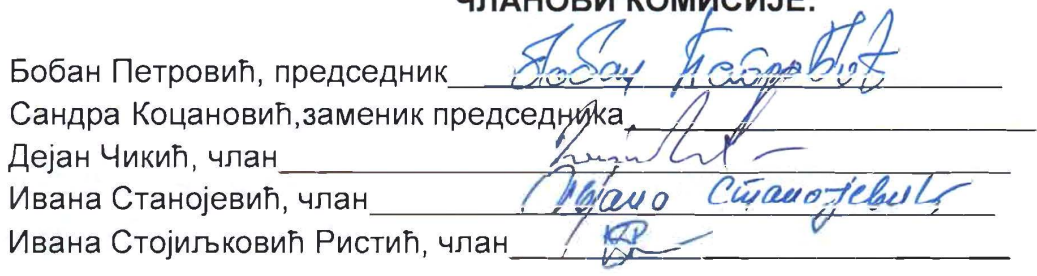 ЧЛАНОВИ КОМИСИЈЕ:
Бобан Петровић, председник Бобан Петровић
Сандра Коцановић,заменик председника
Дејан Чикић, члан
Ивана Станојевић, члан Ивана Станојевић
Ивана Стојиљковић Ристић, члан